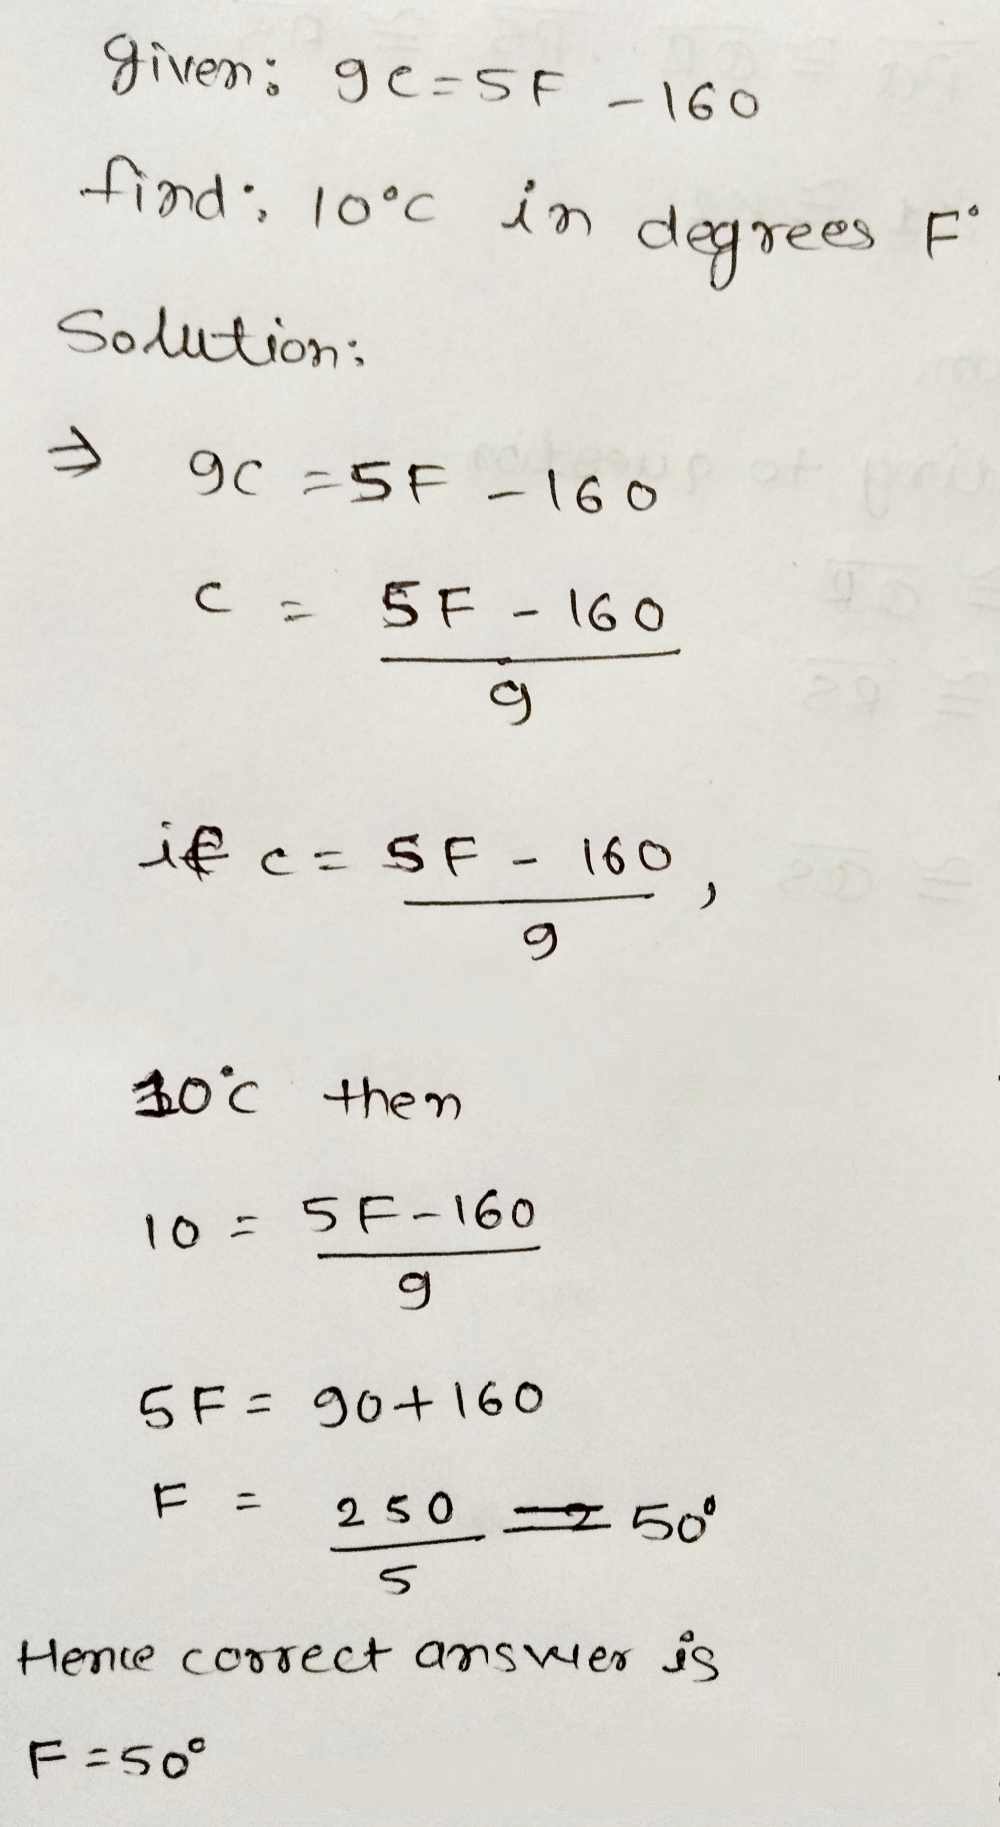 given: 9C=5F - 160
find: 10°C in degrees F°
Solution:
⇒ 9C = 5F - 160
C = 5F - 160
9
if C = 5F - 160,
9
10°C then
10 = 5F-160
9
5F = 90+160
F = 250 = 50°
5
Hence correct answer is
F=50°